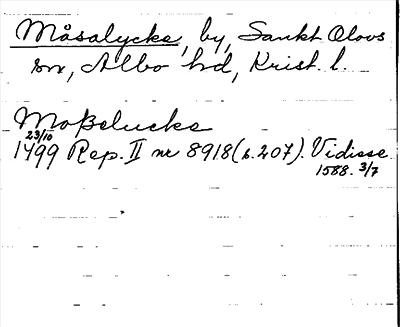 Måsalycke, by, Sankt Olovs
sn, Albo hd, Krist. l.
Moßelucke
23/10
1499 Rep. II nr 8918 (s. 207). Vidisse
1588. 3/7